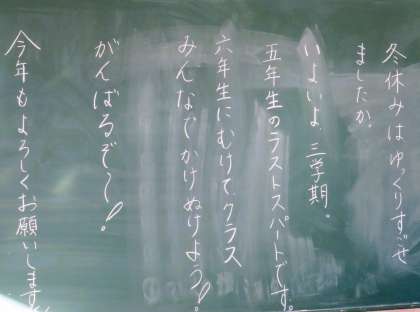 冬休みはゆっくりすごせ
ましたか。
いよいよ、三学期。
五年生のラストスパートです。
六年生にむけて、クラス
みんなでかけぬけよう!
がんばるぞ〜!
今年もよろしくお願いします!